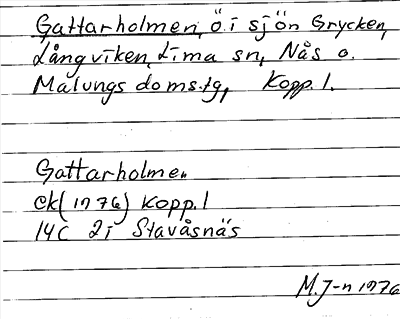 Gattarholmen, ö. i sjön Grycken,
Långviken, Lima sn, Nås o.
Malungs doms.tg, Kopp. l.
Gattarholmen
ek (1976) Kopp. l
14C 2i Stavåsnäs
M.J-n 1976